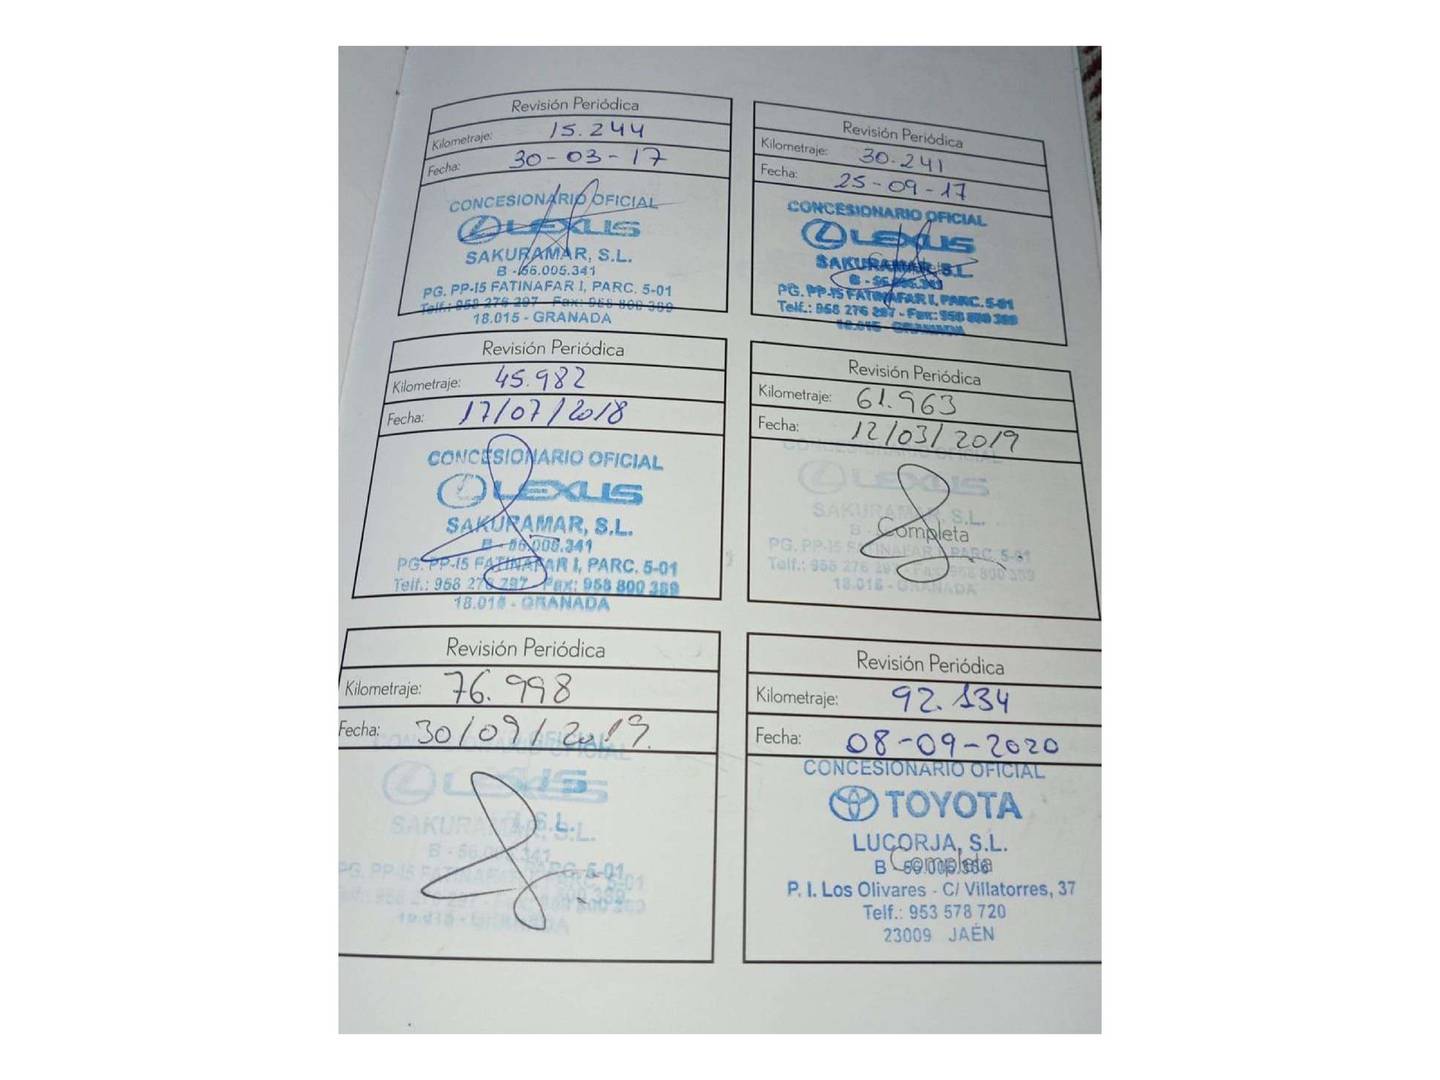 Revisión Periódica
Kilometraje: 15.244
Fecha: 30-03-17
CONCESIONARIO OFICIAL
LEXUS
SAKURAMAR, S.L.
B - 56.005.341
PG. PP-I5 FATINAFAR I, PARC. 5-01
Telf.: 958 276 297 - Fax: 958 800 389
18.015 - GRANADA
Revisión Periódica
Kilometraje: 30.241
Fecha: 25-09-17
CONCESIONARIO OFICIAL
LEXUS
SAKURAMAR, S.L.
B - 56.005.341
PG. PP-I5 FATINAFAR I, PARC. 5-01
Telf.: 958 276 297 - Fax: 958 800 389
18.015 - GRANADA
Revisión Periódica
Kilometraje: 45.982
Fecha: 17/07/2018
CONCESIONARIO OFICIAL
LEXUS
SAKURAMAR, S.L.
B - 56.005.341
PG. PP-I5 FATINAFAR I, PARC. 5-01
Telf.: 958 276 297 - Fax: 958 800 389
18.015 - GRANADA
Revisión Periódica
Kilometraje: 61.963
Fecha: 12/03/2019
CONCESIONARIO OFICIAL
LEXUS
SAKURAMAR, S.L.
Completa
PG. PP-I5 FATINAFAR I, PARC. 5-01
Telf.: 958 276 297 - Fax: 958 800 389
18.015 - GRANADA
Revisión Periódica
Kilometraje: 76.998
Fecha: 30/09/2019.
CONCESIONARIO OFICIAL
LEXUS
SAKURAMAR, S.L.
PG. PP-I5 FATINAFAR I, PARC. 5-01
18.015 - GRANADA
Revisión Periódica
Kilometraje: 92.134
Fecha: 08-09-2020
CONCESIONARIO OFICIAL
TOYOTA
LUCORJA, S.L.
Completa
B - 56.005.358
P. I. Los Olivares - C/ Villatorres, 37
Telf.: 953 578 720
23009 JAÉN